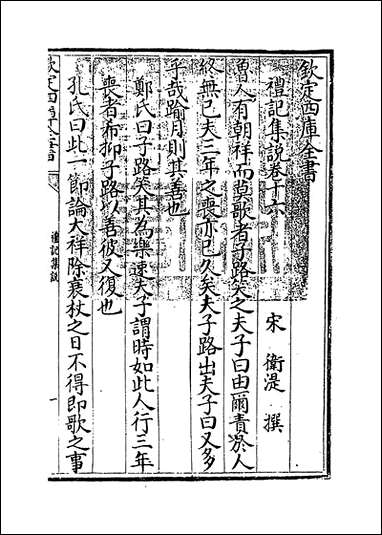 欽定四庫全書
禮記集說卷十六
宋 衛湜 撰
魯人有朝祥而莫歌者子路笑之夫子曰由爾責於人
終無已夫三年之喪亦已久矣夫子路出夫子曰又多
乎哉踰月則其善也
鄭氏曰子路笑其為樂速夫子謂時如此人行三年
喪者希抑子路以善彼又復也
孔氏曰此一節論大祥除衰杖之日不得即歌之事
欽定四庫全書
禮記集說
一